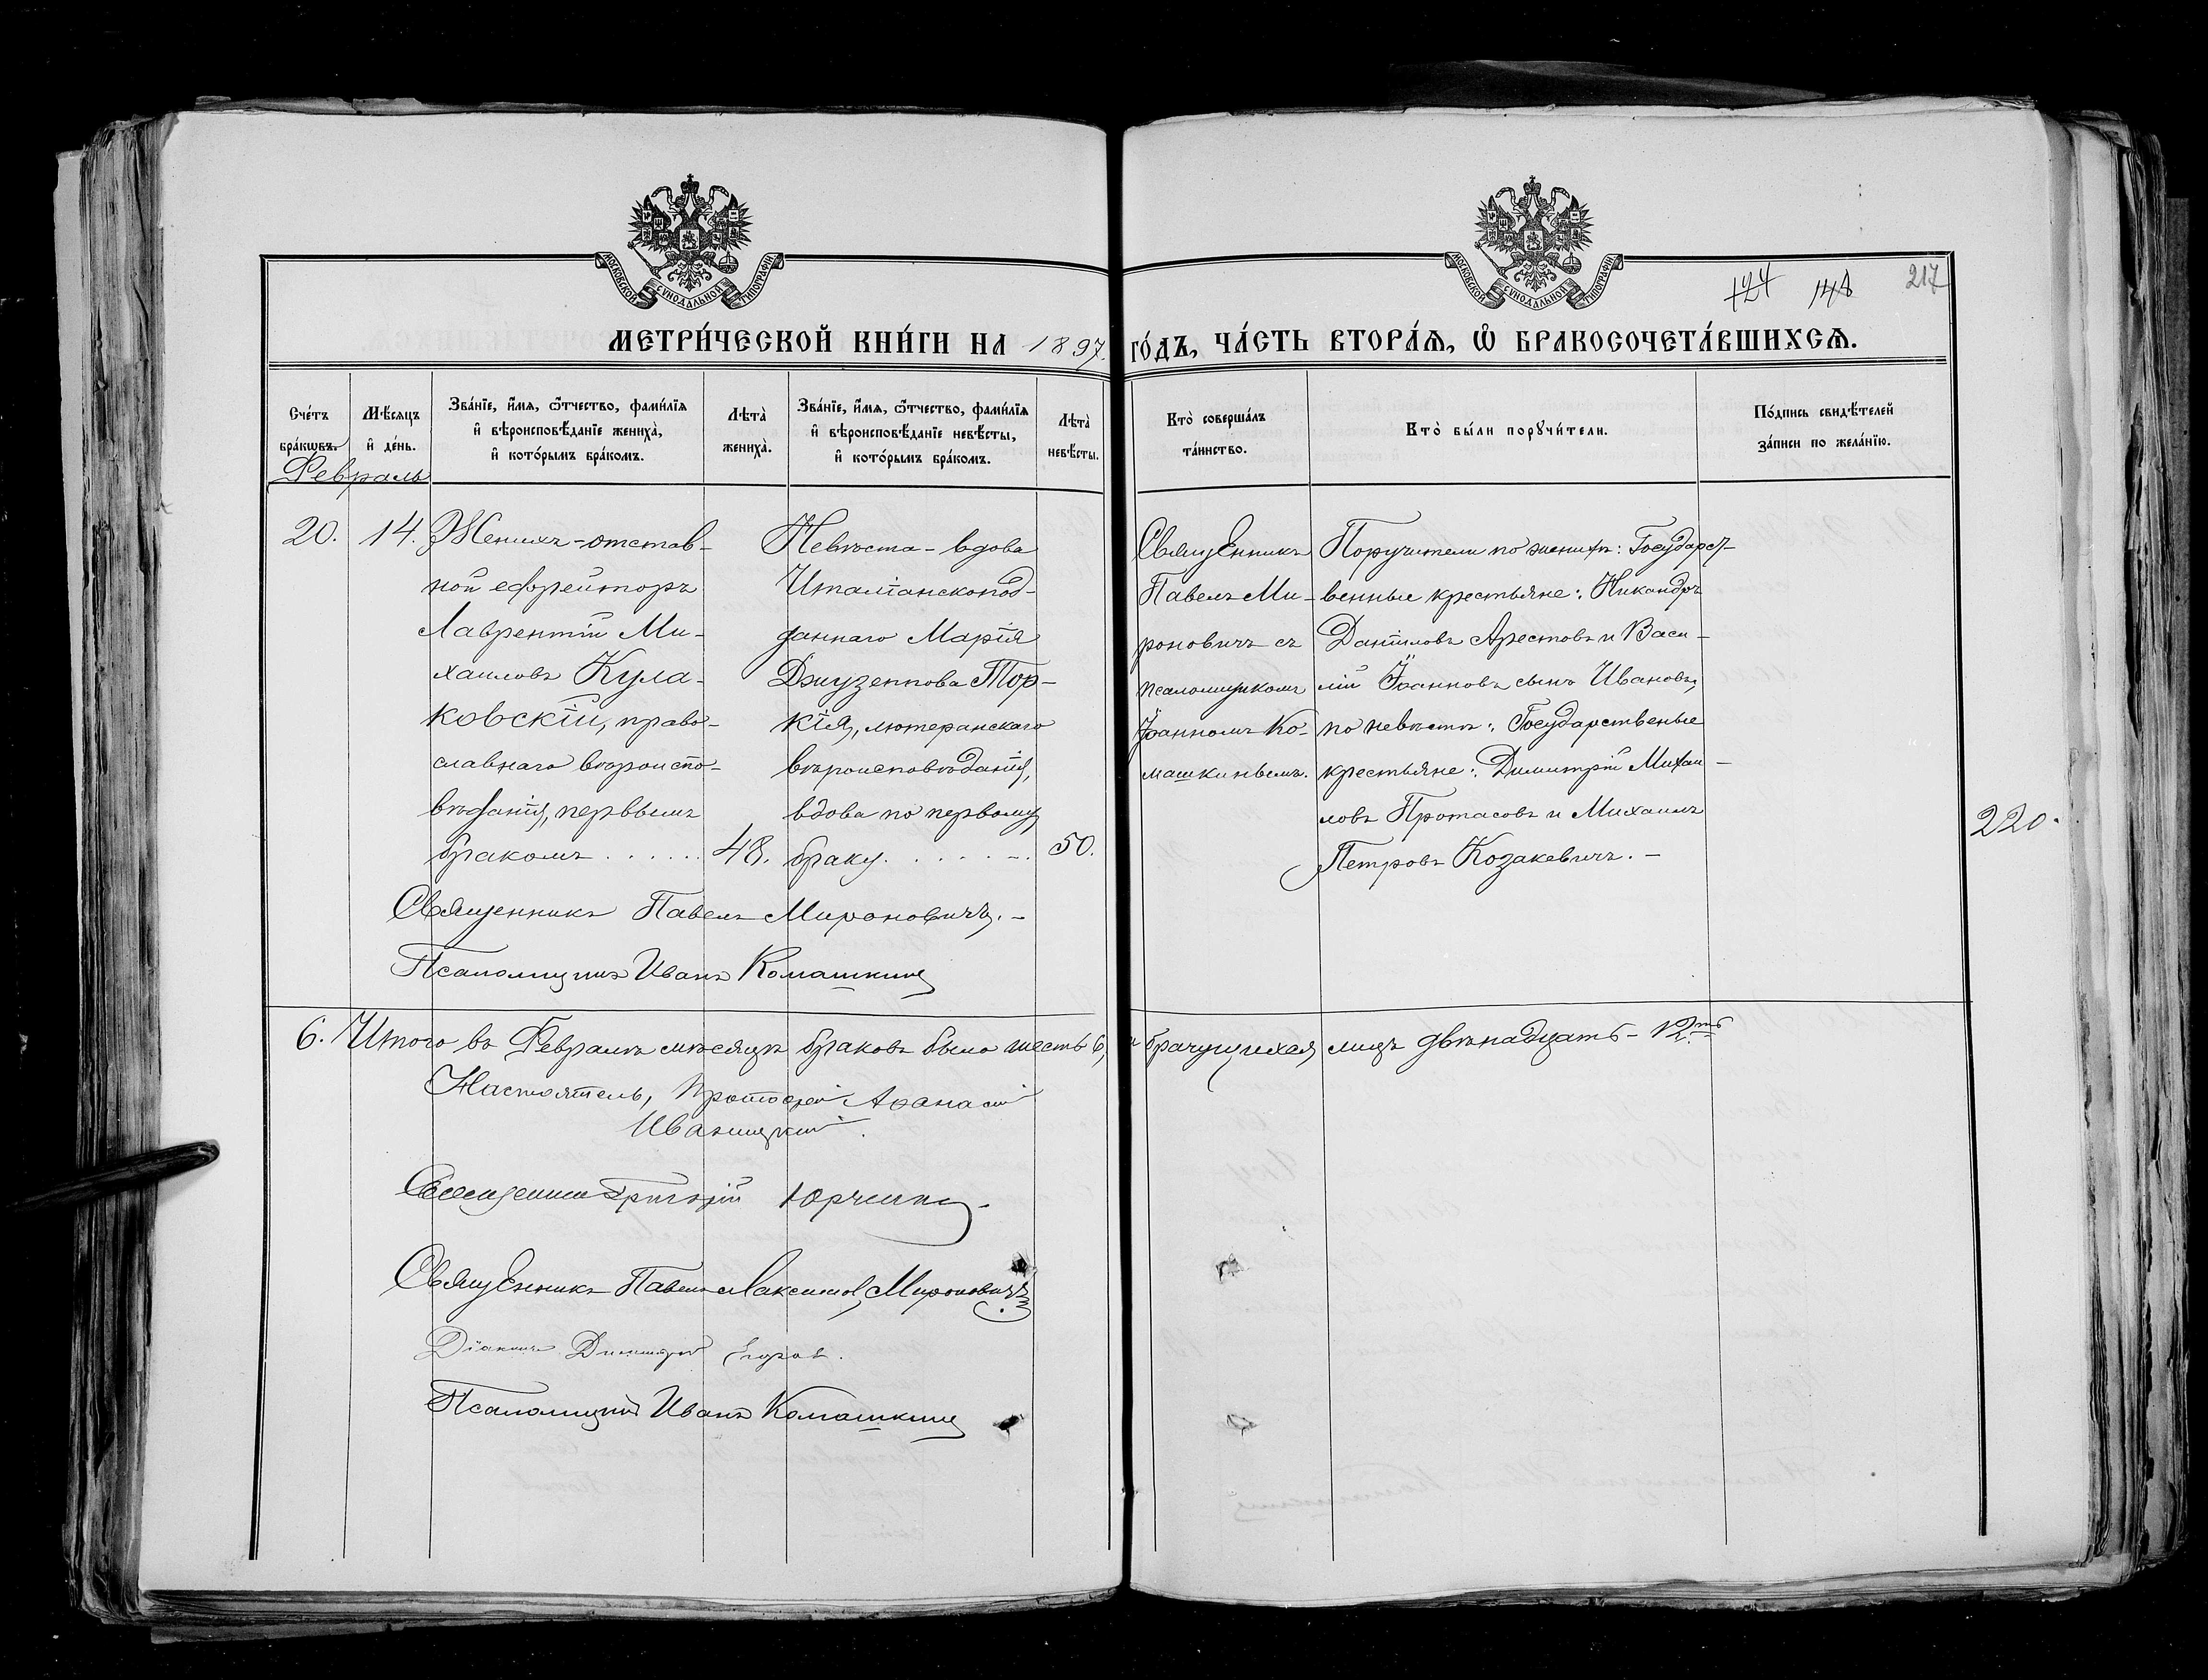 МОСКОВСКОЙ СѴНОДАЛЬНОЙ ТИПОГРАФІИ
МОСКОВСКОЙ СѴНОДАЛЬНОЙ ТИПОГРАФІИ
124 148 217
МЕТРИ́ЧЕСКОЙ КНИ́ГИ НА 1897. ГО́ДЪ, ЧА́СТЬ ВТОРА́Я, Ѡ БРАКОСОЧЕТА́ВШИХСѦ.
Сче́тъ бра́кѡвъ.
Мѣ́сяцъ и҆ де́нь.
Зва́нїе, и҆́мѧ, ѻ҆́тчество, фами́лїѧ
и҆ вѣроисповѣ́данїе жениха̀,
и҆ кото́рымъ бра́комъ.
Лѣта̀ жениха̀.
Зва́нїе, и҆́мѧ, ѻ҆́тчество, фами́лїѧ
и҆ вѣроисповѣ́данїе невѣ́сты,
и҆ кото́рымъ бра́комъ.
Лѣта̀ невѣ́сты.
Кто̀ соверша́лъ
та́инство.
Кто̀ бы́ли порꙋчи́тели.
По́дпись свидѣ́телей
за́писи по жела́нїю.
Февраль
20. 14.
Женихъ - отстав-
ной ефрейторъ
Лаврентій Ми-
хаиловъ Кула-
ковскій, право-
славнаго вѣроиспо-
вѣданія, первымъ
бракомъ . . . . . . 48.
Невѣста - вдова
Италіанскопод-
даннаго Марія
Джузеппова Тор-
кія, лютеранскаго
вѣроисповѣданія,
вдова по первому
браку. . . . . . . 50.
Священникъ
Павелъ Ми-
роновичъ съ
псаломщикомъ
Іоанномъ Ко-
машкинымъ.
Поручители по женихѣ: Государст-
венные крестьяне: Никандръ
Даніиловъ Арестовъ и Васи-
лій Іоанновъ сынъ Ивановъ,
по невѣстѣ: Государственые
крестьяне: Димитрій Михаи-
ловъ Протасовъ и Михаилъ
Петровъ Козакевичъ. -
220.
Священникъ Павелъ Мироновичъ. -
Псаломщикъ Иванъ Комашкинъ
6. Итого въ Февралѣ мѣсяцѣ браковъ было шесть 6, и брачущихся лицъ двѣнадцать - 12ть
Настоятель, Протоіерей Аѳанасій
Иваницкій.
Священникъ Григорій Юрчинъ.
Священникъ Павелъ Максимов. Мироновичъ
Діаконъ Димитрій
Псаломщикъ Иванъ Комашкинъ